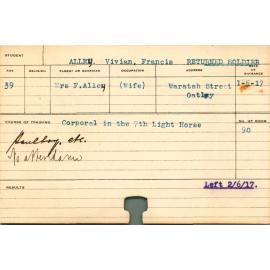 STUDENT
ALLEY, Vivian, Francis RETURNED SOLDIER
AGE RELIGION PARENT OR GUARDIAN OCCUPATION ADDRESS DATE OF ENTRANCE
39 Mrs F.Alley (Wife) Waratah Street 1-5-17
Oatley
COURSE OF TRAINING Corporal in the 7th Light Horse NO. OF ROOM
90
Poultry, etc.
No attendance
RESULTS Left 2/6/17.